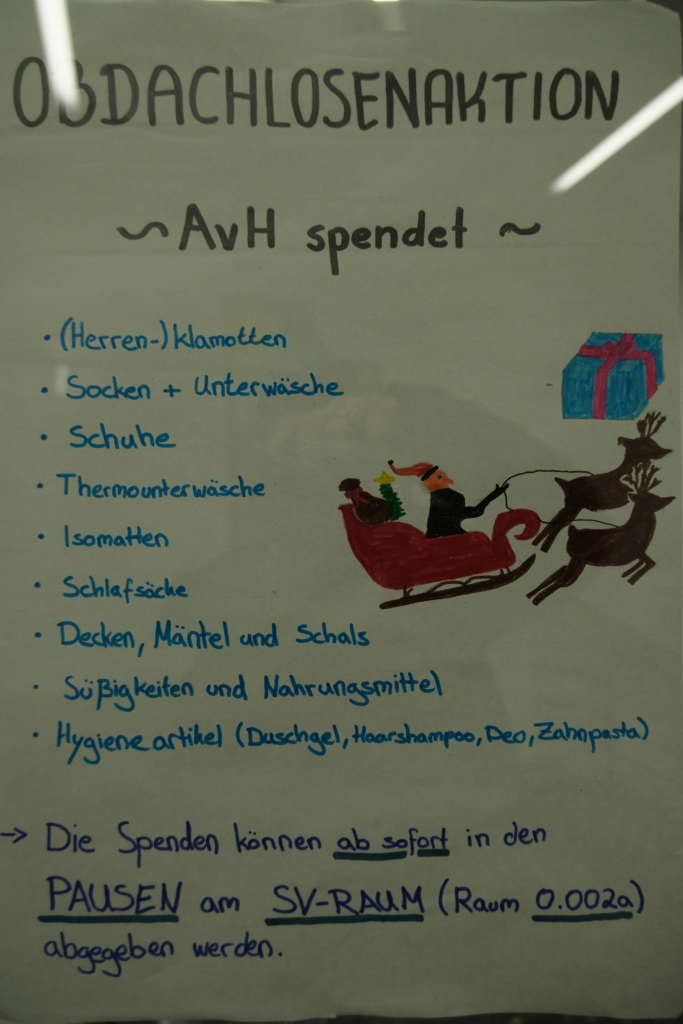 OBDACHLOSENAKTION
~ AvH spendet ~
• (Herren-)klamotten
• Socken + Unterwäsche
• Schuhe
• Thermounterwäsche
• Isomatten
• Schlafsäcke
• Decken, Mäntel und Schals
• Süßigkeiten und Nahrungsmittel
• Hygieneartikel (Duschgel, Haarshampoo, Deo, Zahnpasta)
→ Die Spenden können ab sofort in den
PAUSEN am SV-RAUM (Raum 0.002a)
abgegeben werden.